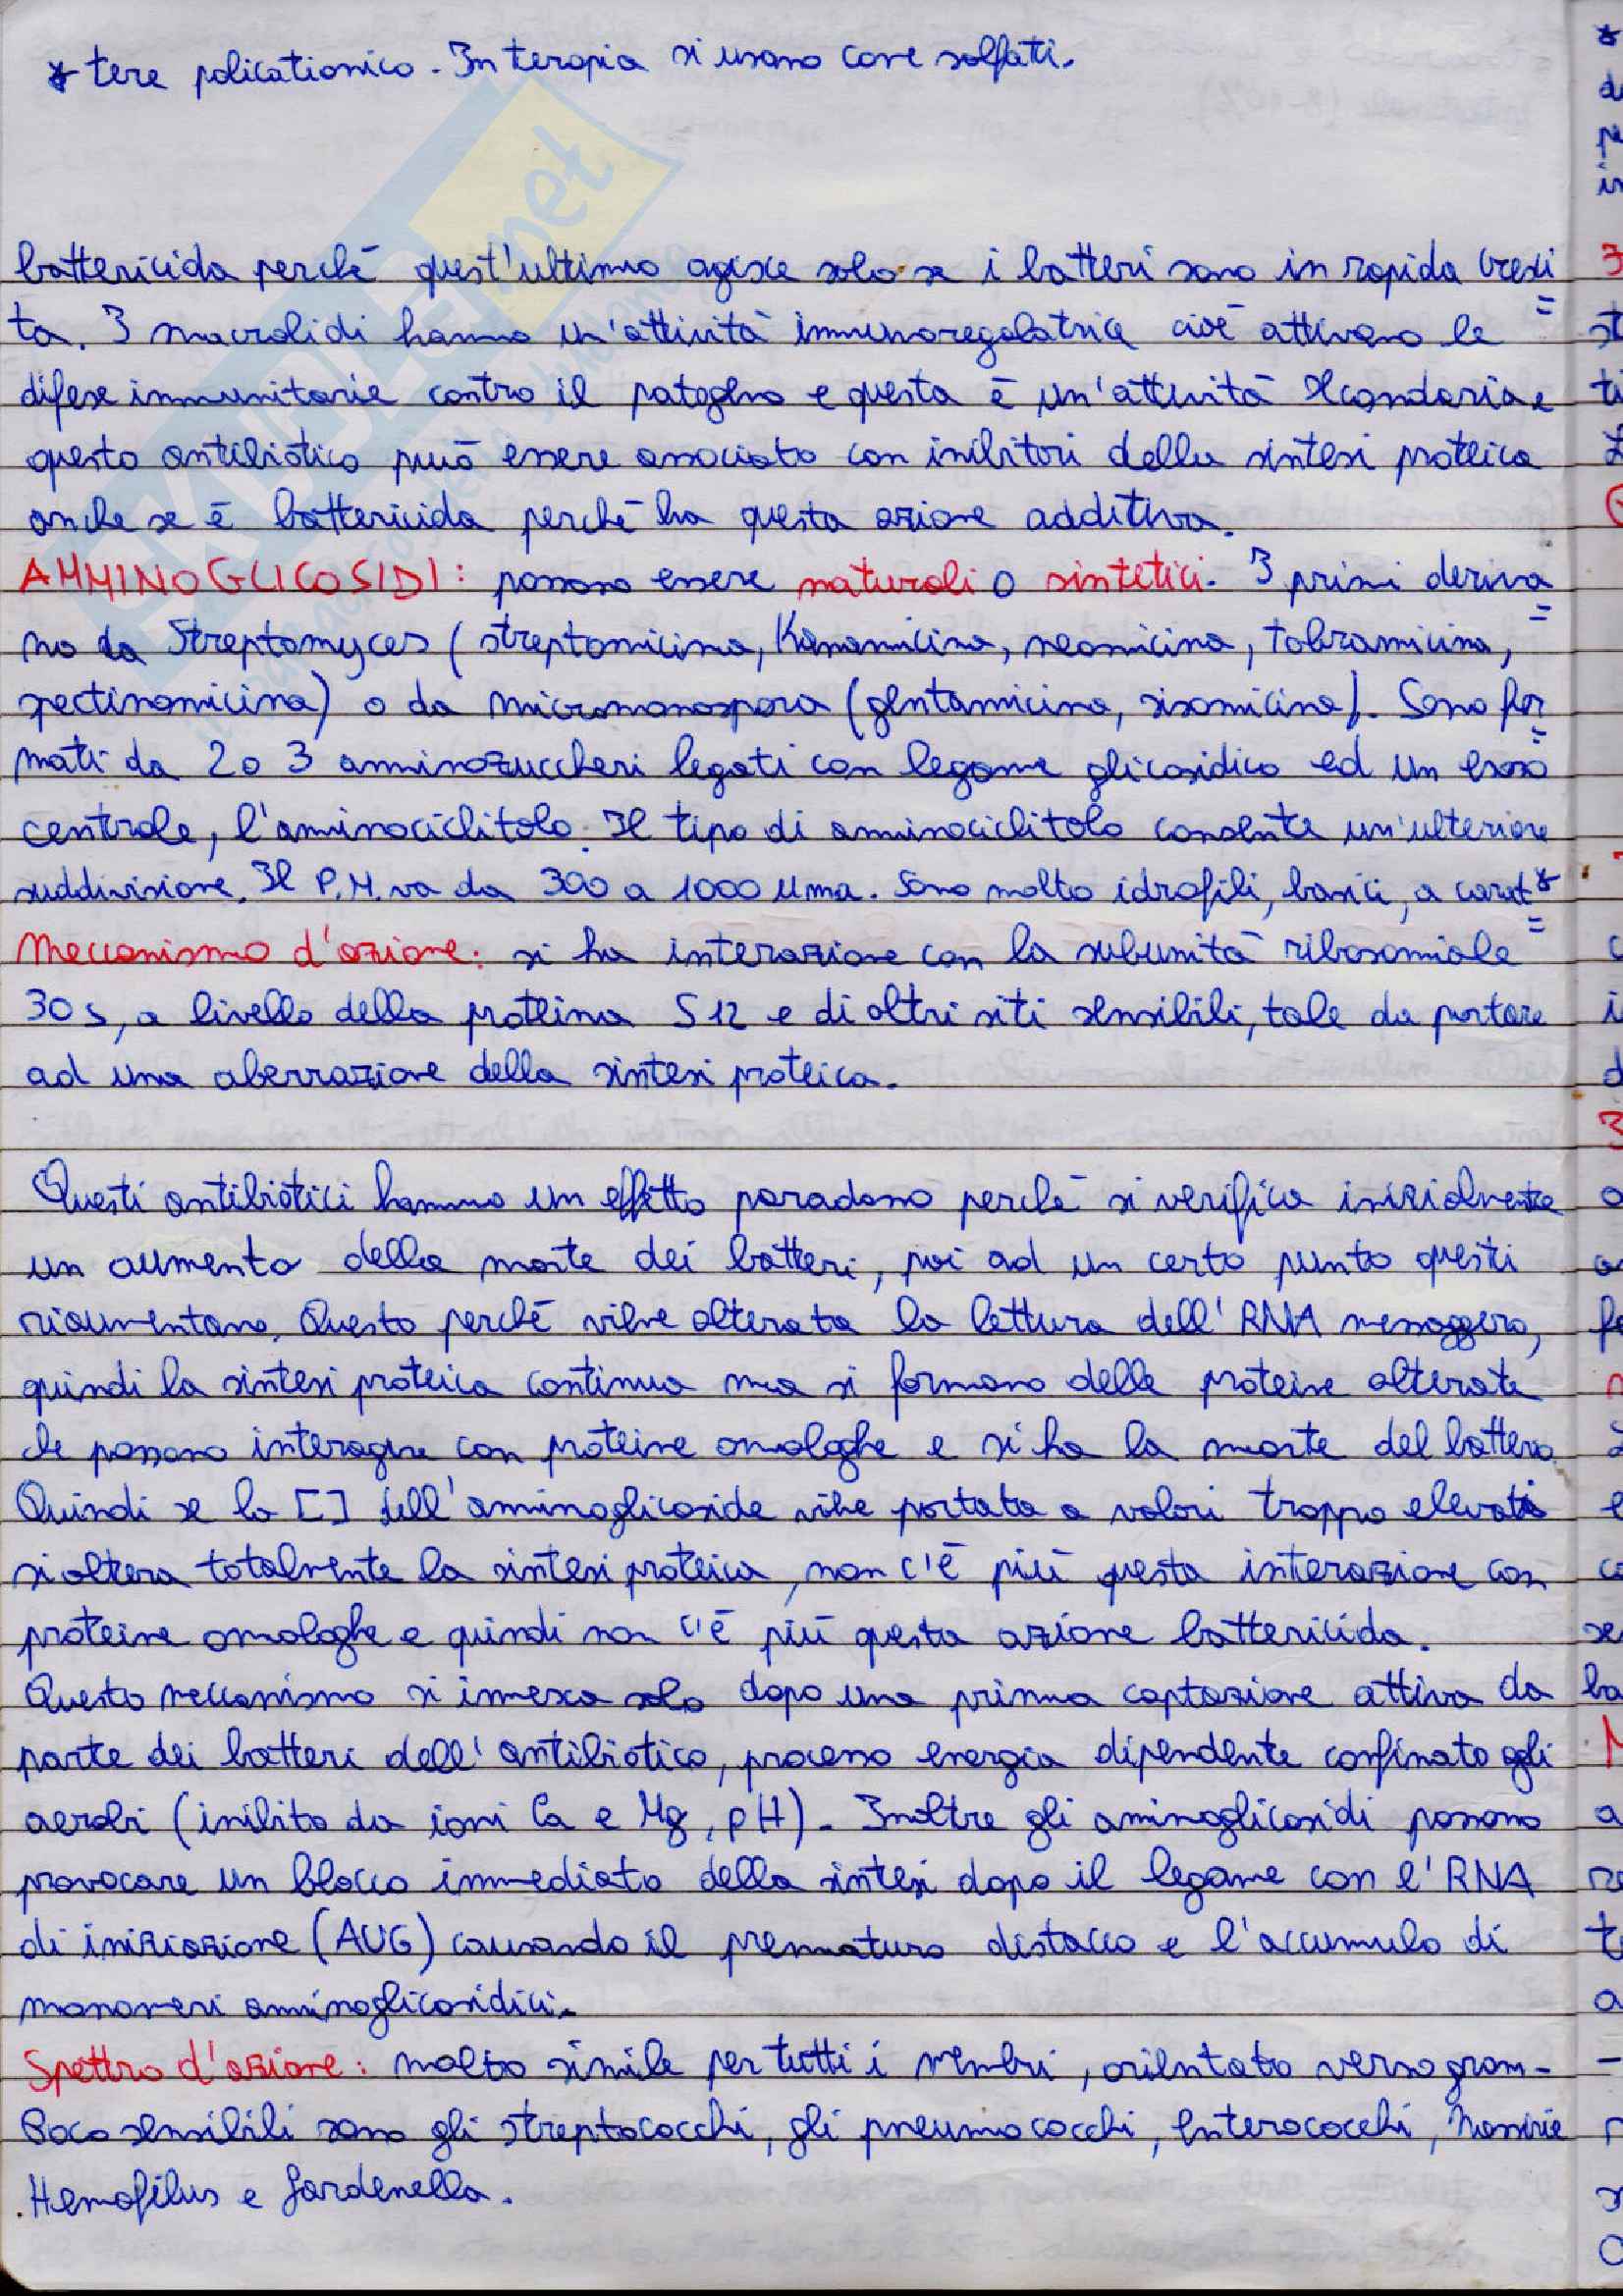 * tere policationico. In terapia si usano come solfati.
battericida perchè quest'ultimo agisce solo se i batteri sono in rapida cresci=
ta. I macrolidi hanno un'attività immunoregolatrice cioè attivano le
difese immunitarie contro il patogeno e questa è un'attività secondaria e
questo antibiotico può essere associato con inibitori della sintesi proteica
anche se è battericida perchè ha questa azione additiva.
AMMINOGLICOSIDI: possono essere naturali o sintetici. I primi deriva=
no da Streptomyces (streptomicina, Kanamicina, neomicina, tobramicina,
spectinomicina) o da micromonospora (gentamicina, sisomicina). Sono for=
mati da 2 o 3 amminozuccheri legati con legame glicosidico ed un esoso
centrale, l'aminociclitolo. Il tipo di aminociclitolo consente un'ulteriore
suddivisione. Il P.M. va da 300 a 1000 uma. Sono molto idrofili, basici, a carat= *
Meccanismo d'azione: si ha interazione con la subunità ribosomiale
30s, a livello della proteina S12 e di altri siti sensibili, tale da portare
ad una aberrazione della sintesi proteica.
Questi antibiotici hanno un effetto paradosso perchè si verifica inizialmente
un aumento della morte dei batteri, poi ad un certo punto questi
riaumentano. Questo perchè viene alterata la lettura dell'RNA messaggero,
quindi la sintesi proteica continua ma si formano delle proteine alterate
che possono interagire con proteine omologhe e si ha la morte del battero.
Quindi se la [] dell'aminoglicoside viene portata a valori troppo elevati
si altera totalmente la sintesi proteica, non c'è più questa interazione con
proteine omologhe e quindi non c'è più questa azione battericida.
Questo meccanismo si innesca solo dopo una prima captazione attiva da
parte dei batteri dell'antibiotico, processo energia dipendente confinato agli
aerobi (inibito da ioni Ca e Mg, pH). Inoltre gli aminoglicosidi possono
provocare un blocco immediato della sintesi dopo il legame con l'RNA
di iniziazione (AUG) causando il prematuro distacco e l'accumulo di
monomeri aminoglicosidici.
Spettro d'azione: molto simile per tutti i membri, orientato verso gram-
Poco sensibili sono gli streptococchi, gli pneumococchi, enterococchi,
Hemofilus e Gardenella.